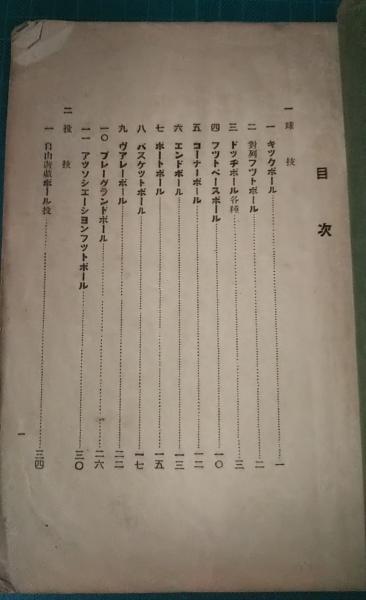 目次
一 球技
一 キックボール……一
二 對列フツトボール……二
三 ドッチボール各種……三
四 フツトベースボール……一〇
五 コーナーボール……一二
六 エンドボール……一三
七 ポートボール……一五
八 バスケットボール……一七
九 ヴアレーボール……二二
一〇 プレーグランドボール……二六
一一 アツソシエーシヨンフットボール……三〇
二 投技
一 自由遊戯ボール投……三四
一